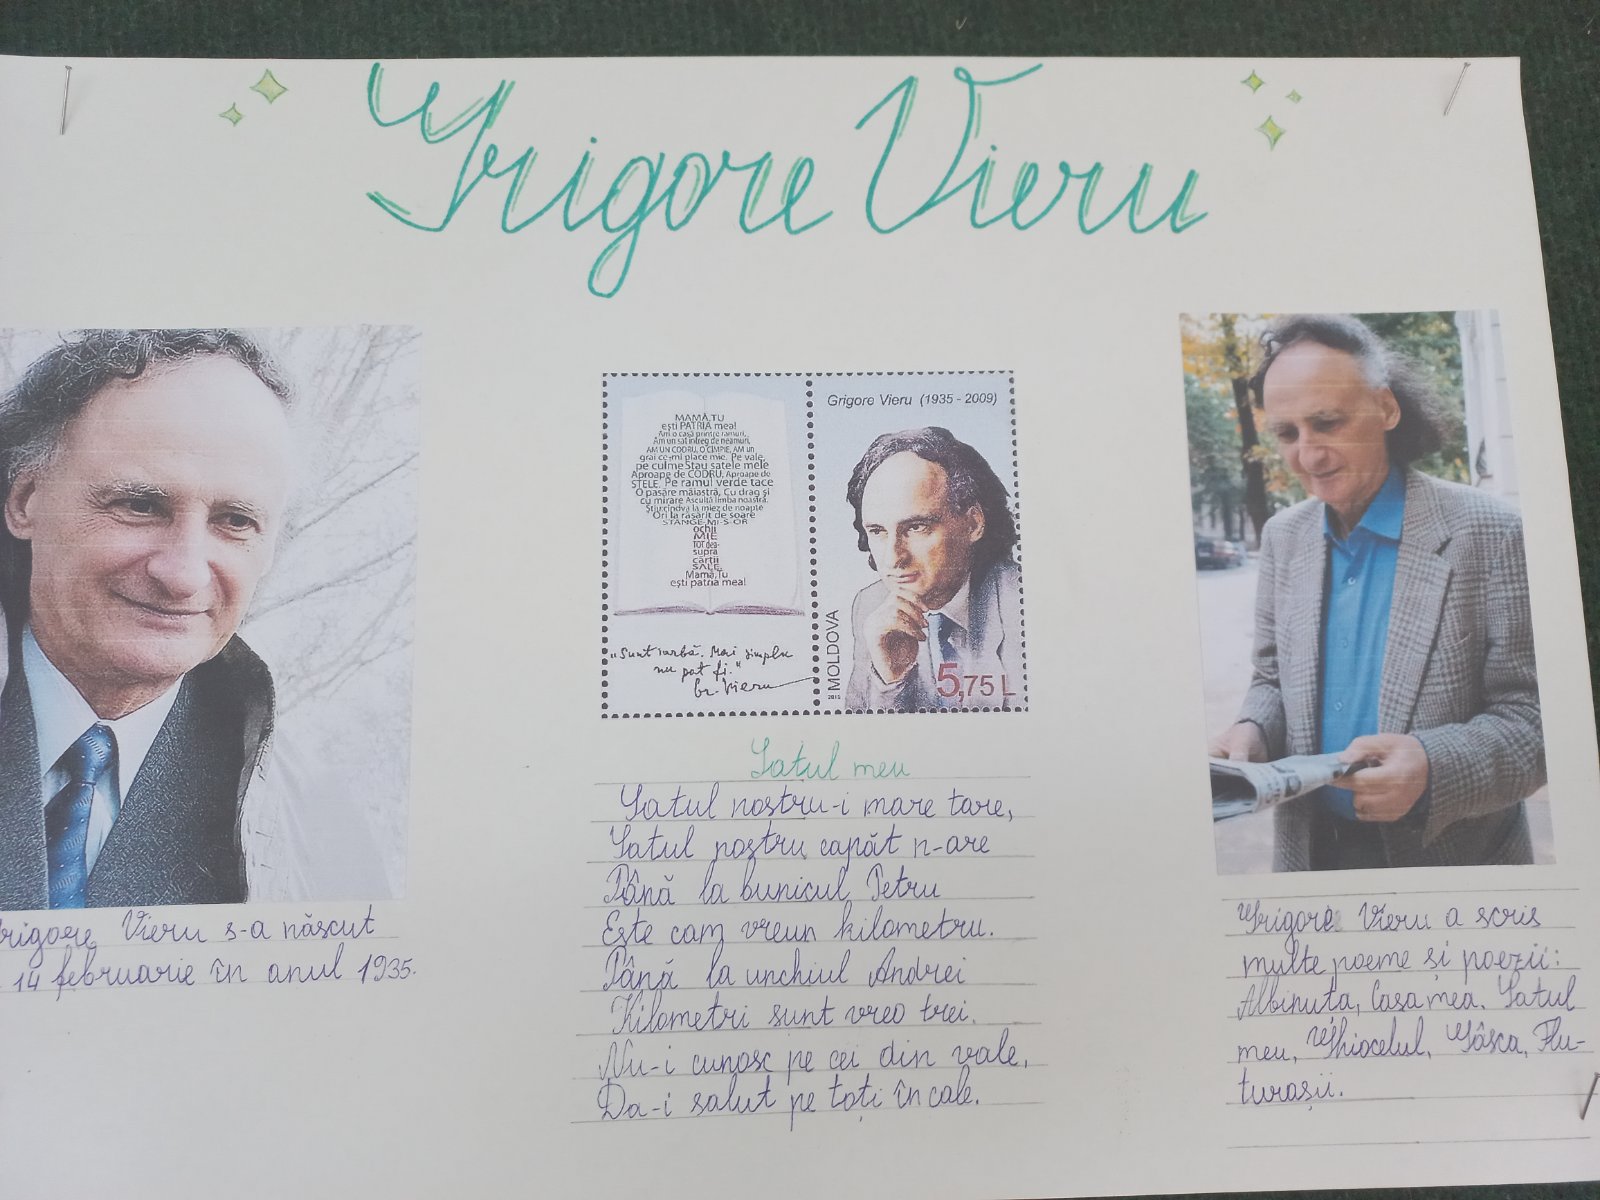 Grigore Vieru
MAMĂ, TU
ești PATRIA mea!
Am o casă printre ramuri,
Am un sat întreg de neamuri,
AM UN CODRU, O CÎMPIE, AM un
grai ce-mi place mie. Pe vale,
pe culme Stau satele mele
Aproape de CODRU, Aproape de
STELE. Pe ramul verde tace
O pasăre măiastră, Cu drag și
cu mirare Ascultă limba noastră.
Știu:cîndva la miez de noapte
Ori la răsărit de soare
STÂNGE-MI-S-OR
ochii
MIE
TOT dea-
supra
cărții
SALE.
Mamă,Tu
ești patria mea!
„Sunt iarbă. Mai simplu
nu pot fi."
Gr. Vieru
Grigore Vieru (1935 - 2009)
MOLDOVA
2015
5,75 L
rigore Vieru s-a născut
14 februarie în anul 1935.
Satul meu
Satul nostru-i mare tare,
Satul nostru capăt n-are
Până la bunicul Petru
Este cam vreun kilometru.
Până la unchiul Andrei
Kilometri sunt vreo trei.
Nu-i cunosc pe cei din vale,
Da-i salut pe toți în cale.
Grigore Vieru a scris
multe poeme și poezii:
Albinuta, Casa mea, Satul
meu, Ghiocelul, Gâsca, Flu-
turașii.